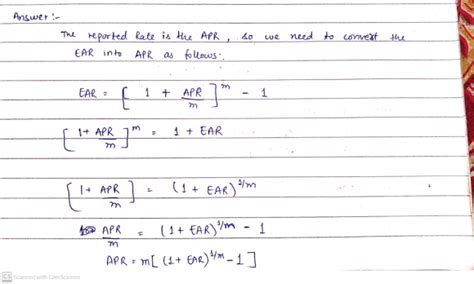 Answer :-
The reported Rate is the APR, so we need to convert the
EAR into APR as follows:
EAR = [ 1 + APR/m ]^m - 1
[ 1 + APR/m ]^m = 1 + EAR
[ 1 + APR/m ] = (1 + EAR)^1/m
APR/m = (1 + EAR)^1/m - 1
APR = m[ (1 + EAR)^1/m - 1 ]
CS Scanned with CamScanner